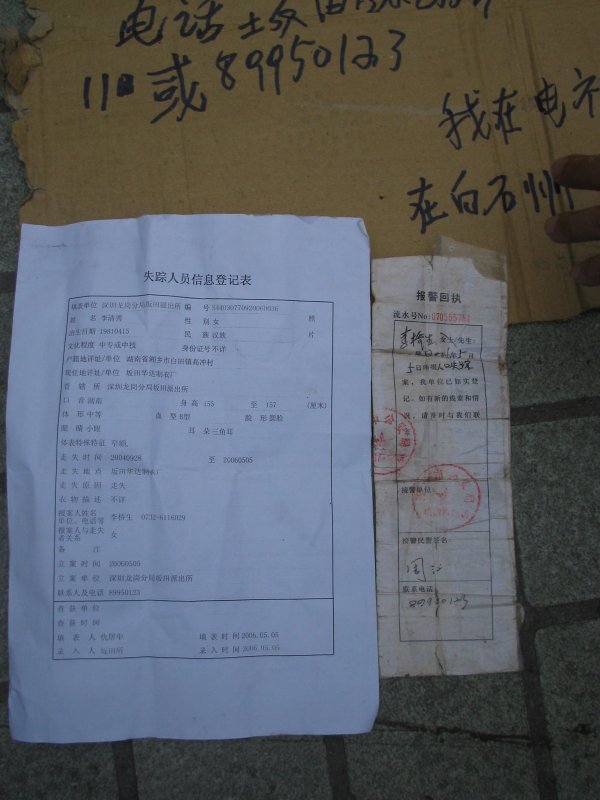 电话
110或89950123
我在电
在白石州
失踪人员信息登记表
填表单位 深圳龙岗分局坂田派出所 编号 S44030770920060036
姓名 李清秀 性别 女 照
出生日期 19810415 民族 汉族 片
文化程度 中专或中技 身份证号 不详
户籍地详址/单位 湖南省湘乡市白田镇
现住地详址/单位 坂田华达制衣厂
管辖所 深圳龙岗分局坂田派出所
口音 湖南 身高 155 至 157 (厘米)
体形 中等 血型 B型 脸形 圆脸
眼睛 小眼 耳朵 三角耳
体表特殊特征
走失时间 20040928 至 20060505
走失地点 坂田华达制衣厂
走失原因 走失
衣物描述 不详
报案人姓名
单位、电话等 李桥生 0732-6116029
报案人与走失
者关系 女
备注
立案时间 20060505
立案单位 深圳龙岗分局坂田派出所
联系人及电话 89950123
查获单位
查获时间
填表人 仇居华 填表时间 2006.05.05
录入人 坂田所 录入时间 2006.05.05
报警回执
流水号No:070555781
李桥生 女士/先生:
5日所报人口失踪
案,我单位已如实登
记。如有新的线索和情
况,请并时与我们联
接警单位:
接警民警签名:
周江
联系电话:
89950123